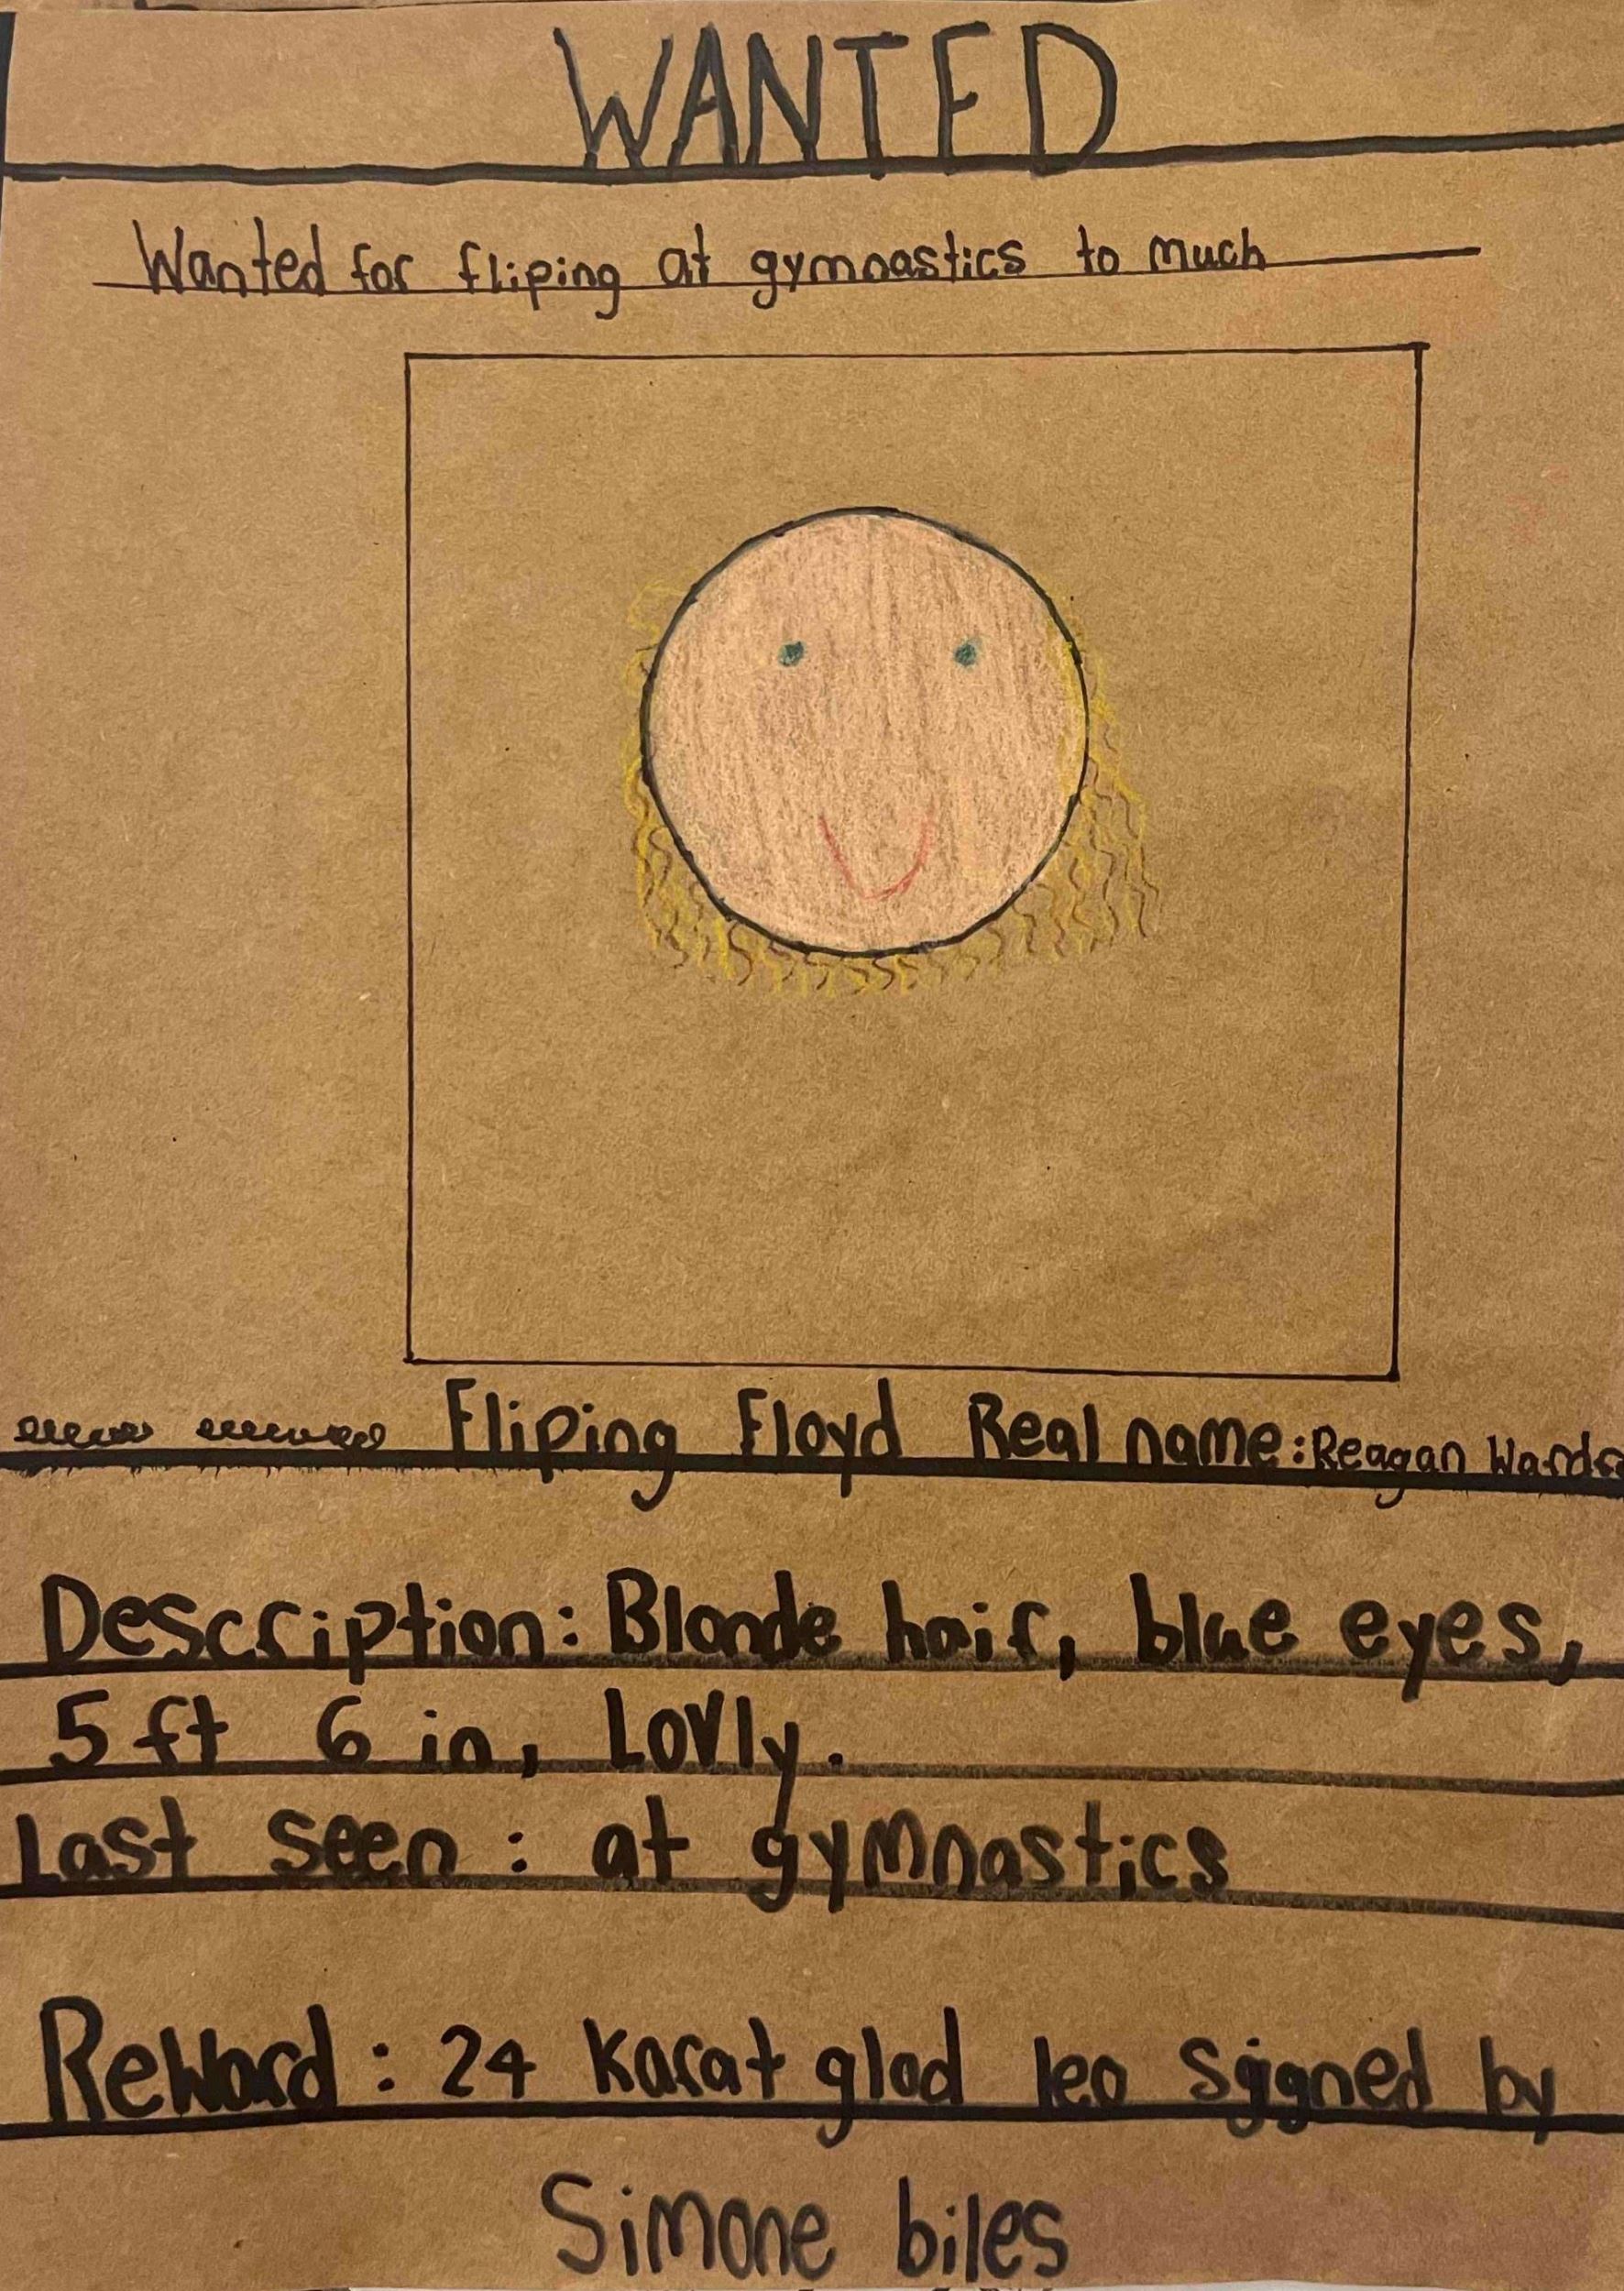 WANTED
Wanted for fliping at gymnastics to much
Fliping Floyd Real name: Reagan
Description: Blonde hair, blue eyes,
5 ft 6 in, Lovly.
Last seen: at gymnastics
Reward: 24 karat glod leo signed by
Simone biles